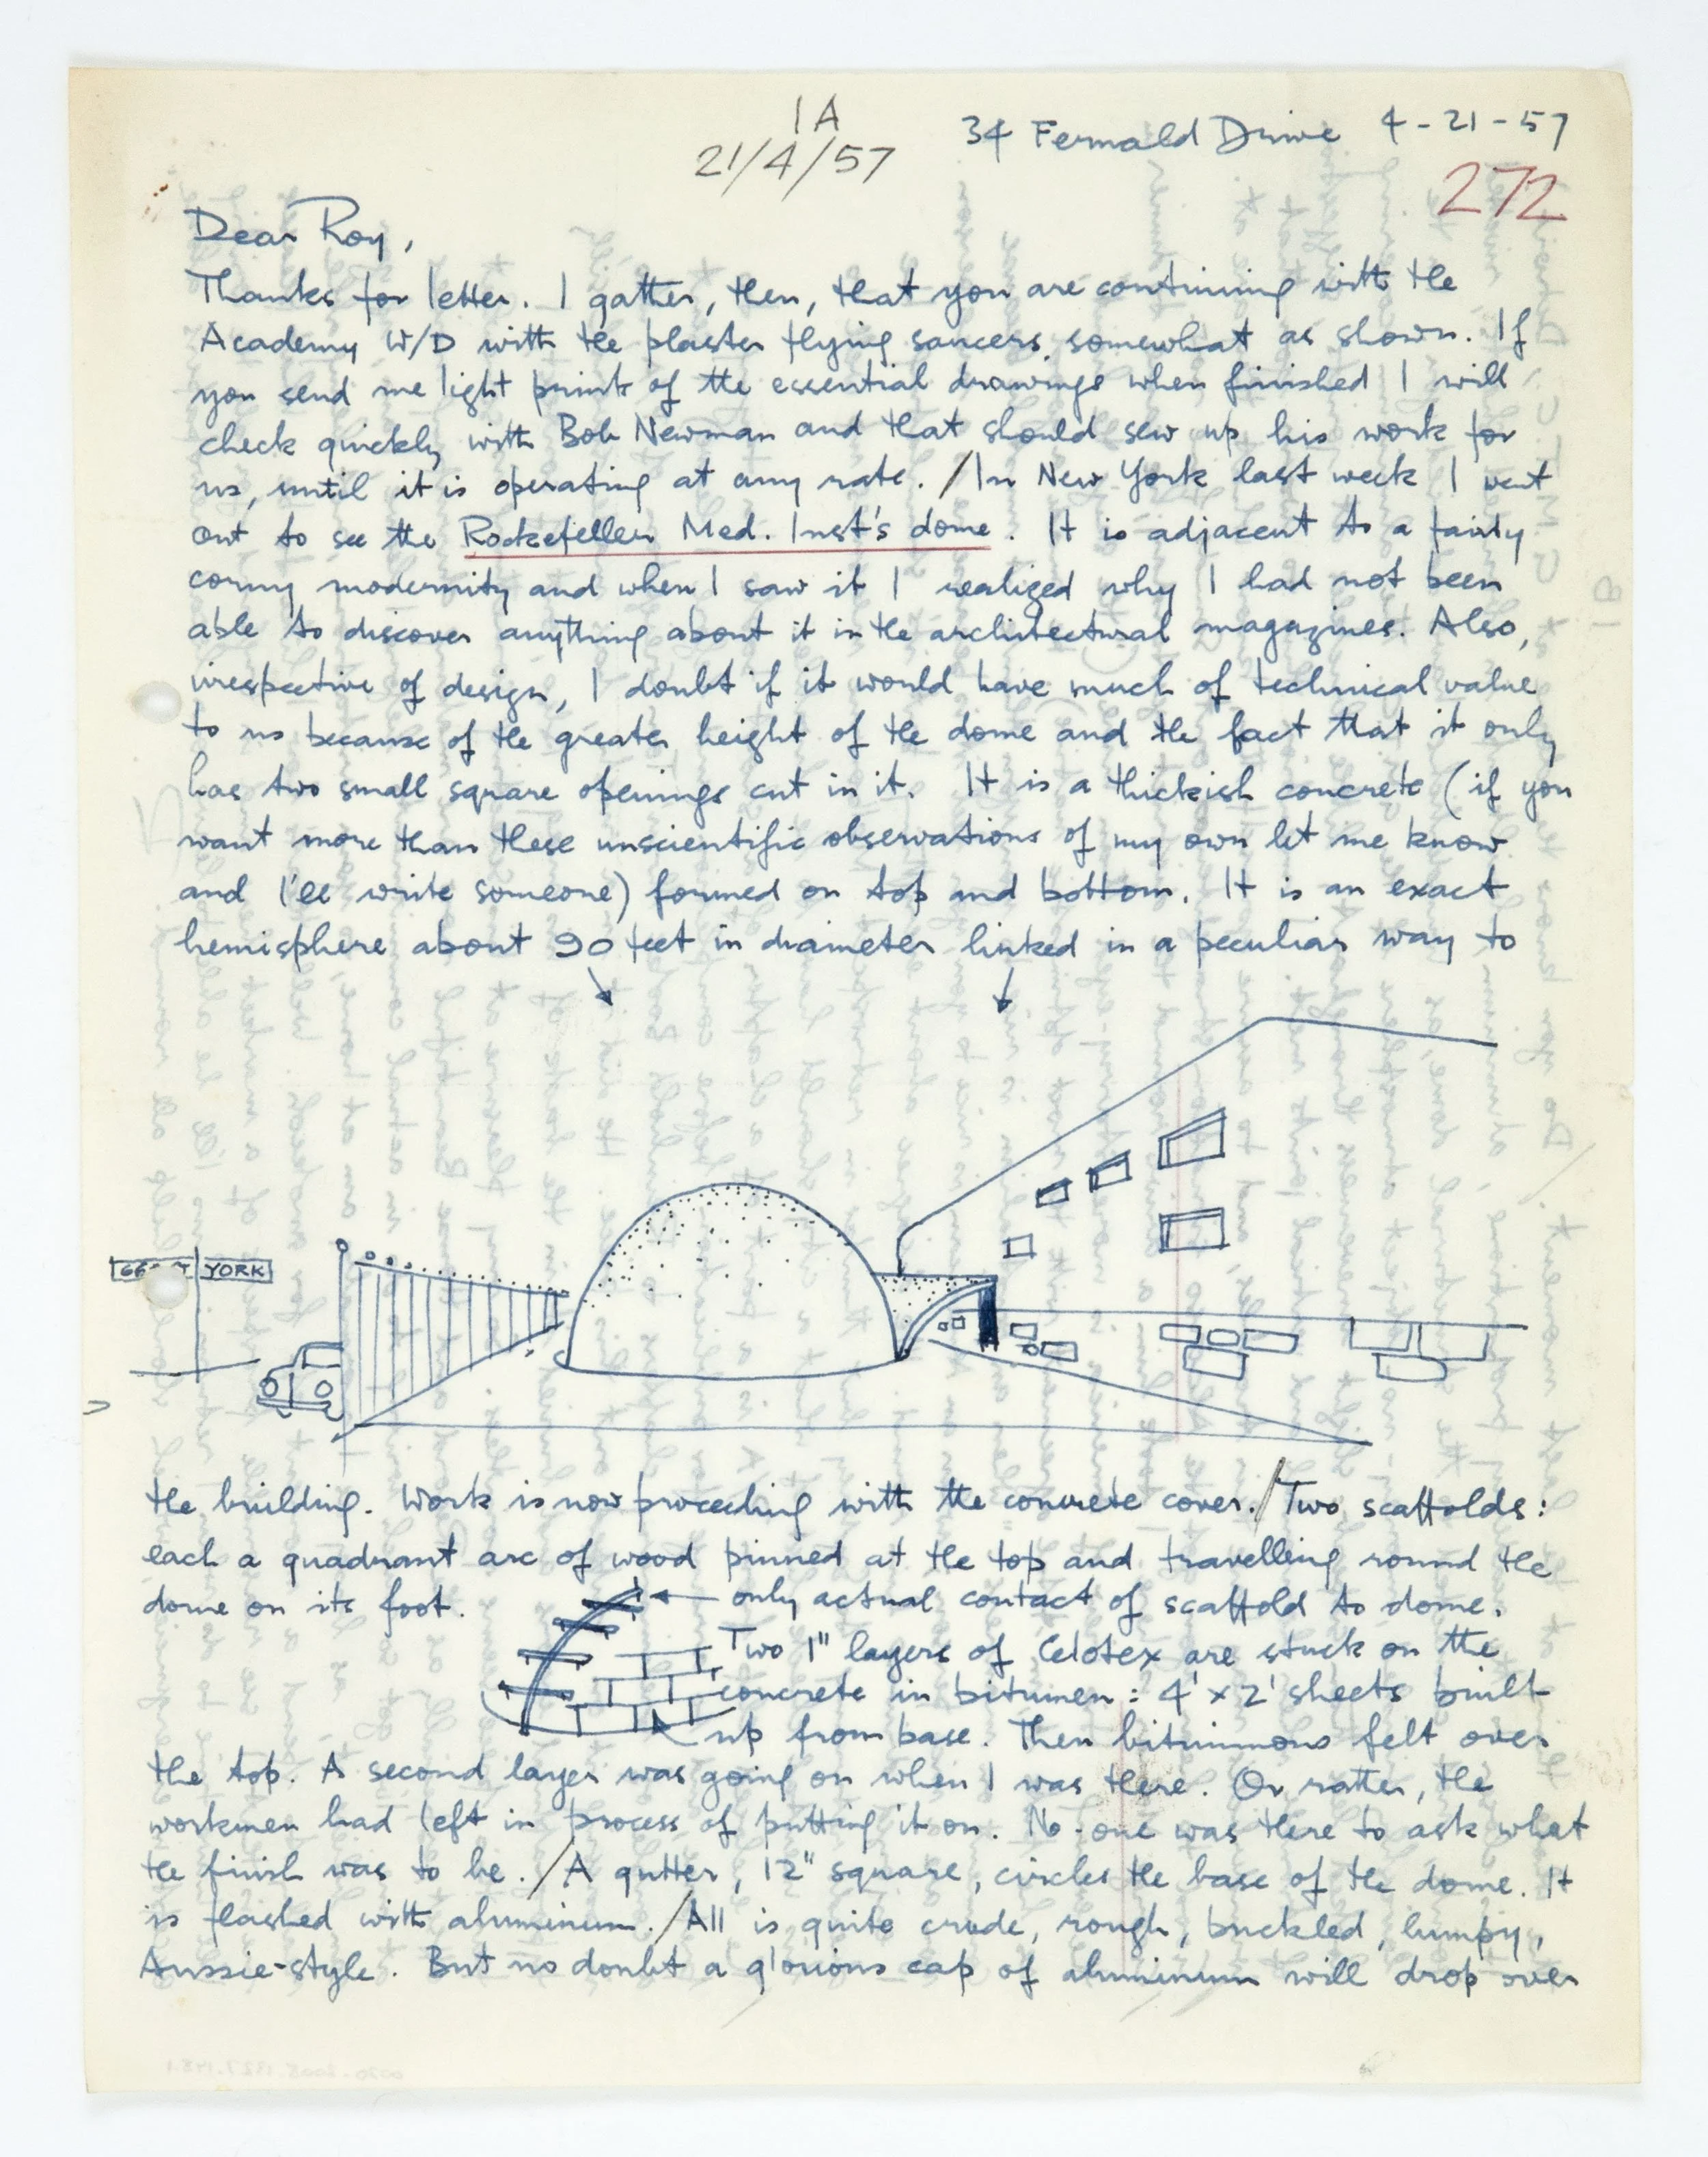 1A
21/4/57
34 Fernald Drive 4-21-57
272
Dear Roy,
Thanks for letter. I gather, then, that you are continuing with the
Academy W/D with the plaster flying saucers somewhat as shown. If
you send me light prints of the essential drawings when finished I will
check quickly with Bob Newman and that should sew up his work for
us, until it is operating at any rate. / In New York last week I went
out to see the Rockefeller Med. Inst's dome. It is adjacent to a fairly
corny modernity and when I saw it I realized why I had not been
able to discover anything about it in the architectural magazines. Also,
irrespective of design, I doubt if it would have much of technical value
to us because of the greater height of the dome and the fact that it only
has two small square openings cut in it. It is a thickish concrete (if you
want more than these unscientific observations of my own let me know
and I'll write someone) formed on top and bottom. It is an exact
hemisphere about 90 feet in diameter linked in a peculiar way to
YORK
the building. Work is now proceeding with the concrete cover. / Two scaffolds:
each a quadrant arc of wood pinned at the top and travelling round the
dome on its foot.
only actual contact of scaffold to dome.
Two 1" layers of Celotex are stuck on the
concrete in bitumen: 4' x 2' sheets built
up from base. Then bituminous felt over
the top. A second layer was going on when I was there. Or rather, the
workmen had left in process of putting it on. No-one was there to ask what
the finish was to be. / A gutter, 12" square, circles the base of the dome. It
is flashed with aluminum. / All is quite crude, rough, buckled, lumpy,
Aussie-style. But no doubt a glorious cap of aluminum will drop over